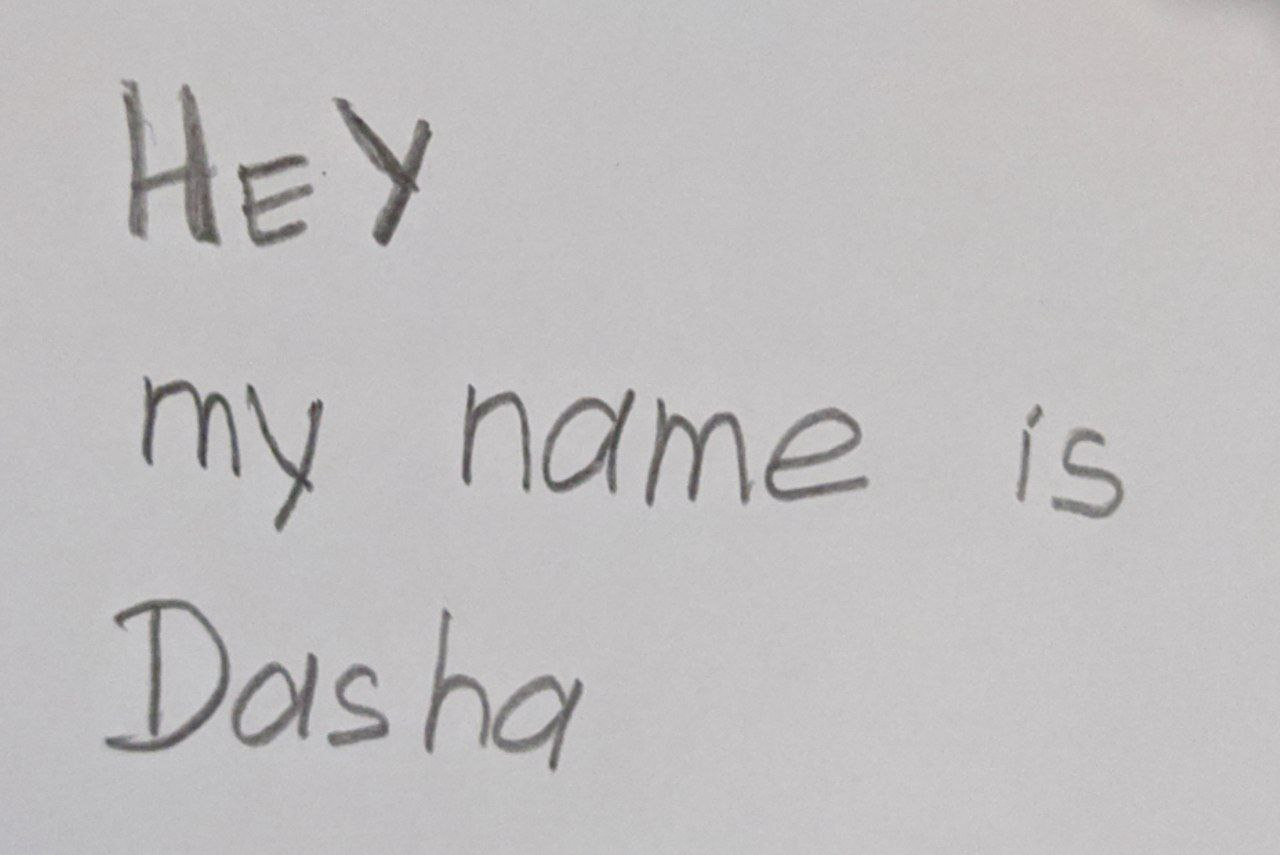 HEY
my name is
Dasha